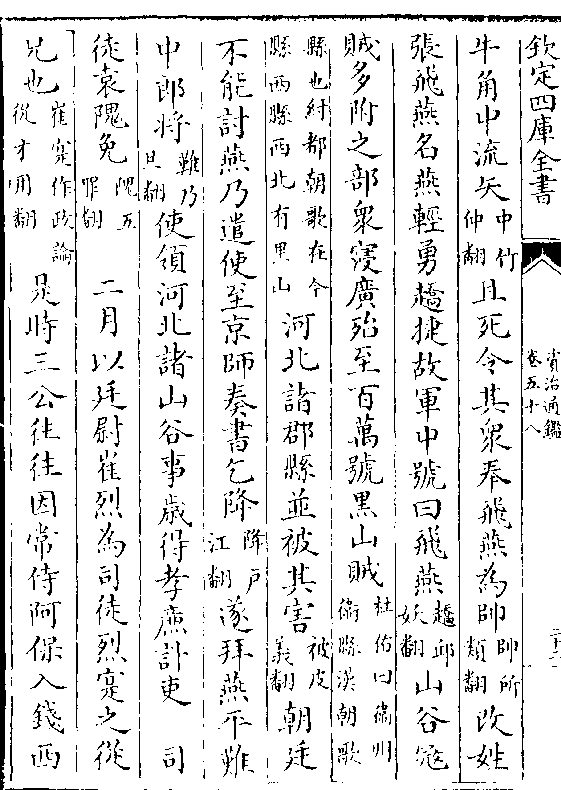 欽定四庫全書
資治通鑑
卷五十八
牛角中流矢中竹仲翻且死令其衆奉飛燕為帥帥所類翻改姓
張飛燕名燕輕勇趫捷故軍中號曰飛燕趫丘妖翻山谷寇
賊多附之部衆寖廣殆至百萬號黑山賊杜佑曰衞州衞縣漢朝歌
縣也紂都朝歌在今縣西縣西北有黑山河北諸郡縣並被其害被皮義翻朝廷
不能討燕乃遣使至京師奏書乞降降戶江翻遂拜燕平難
中郎將難乃旦翻使領河北諸山谷事歲得孝廉計吏　司
徒袁隗免隗五罪翻　二月以廷尉崔烈為司徒烈寔之從
兄也崔寔作政論從才用翻　是時三公往往因常侍阿保入錢西